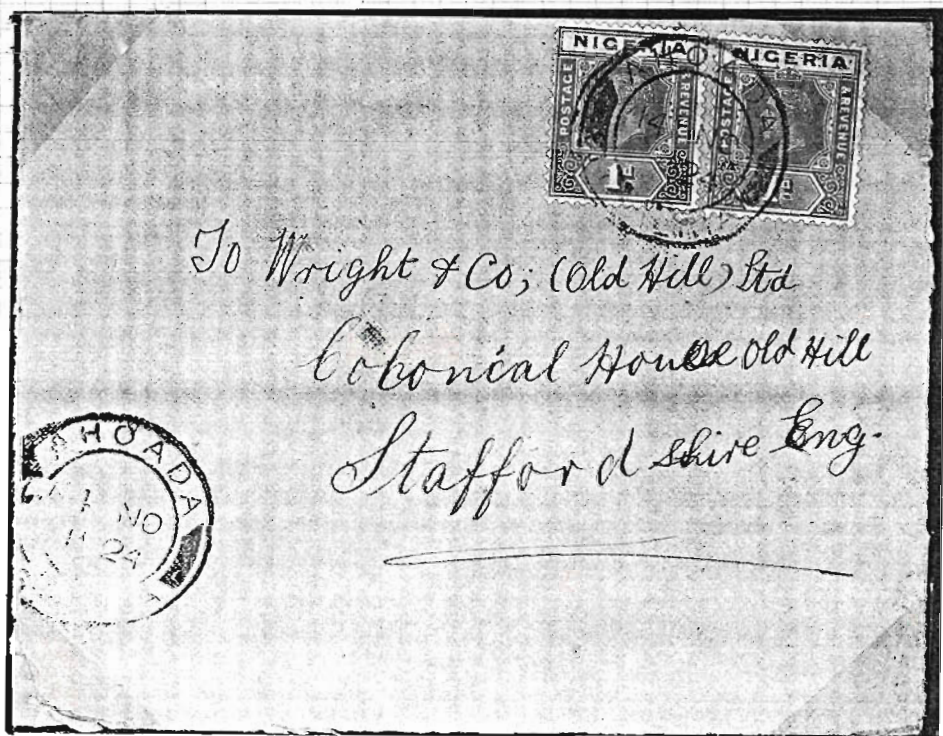 NIGERIA NIGERIA
POSTAGE & REVENUE POSTAGE & REVENUE
1d
To Wright & Co; (Old Hill) Ltd
Colonial House Old Hill
Staffordshire Eng.
AHOADA
NO
24